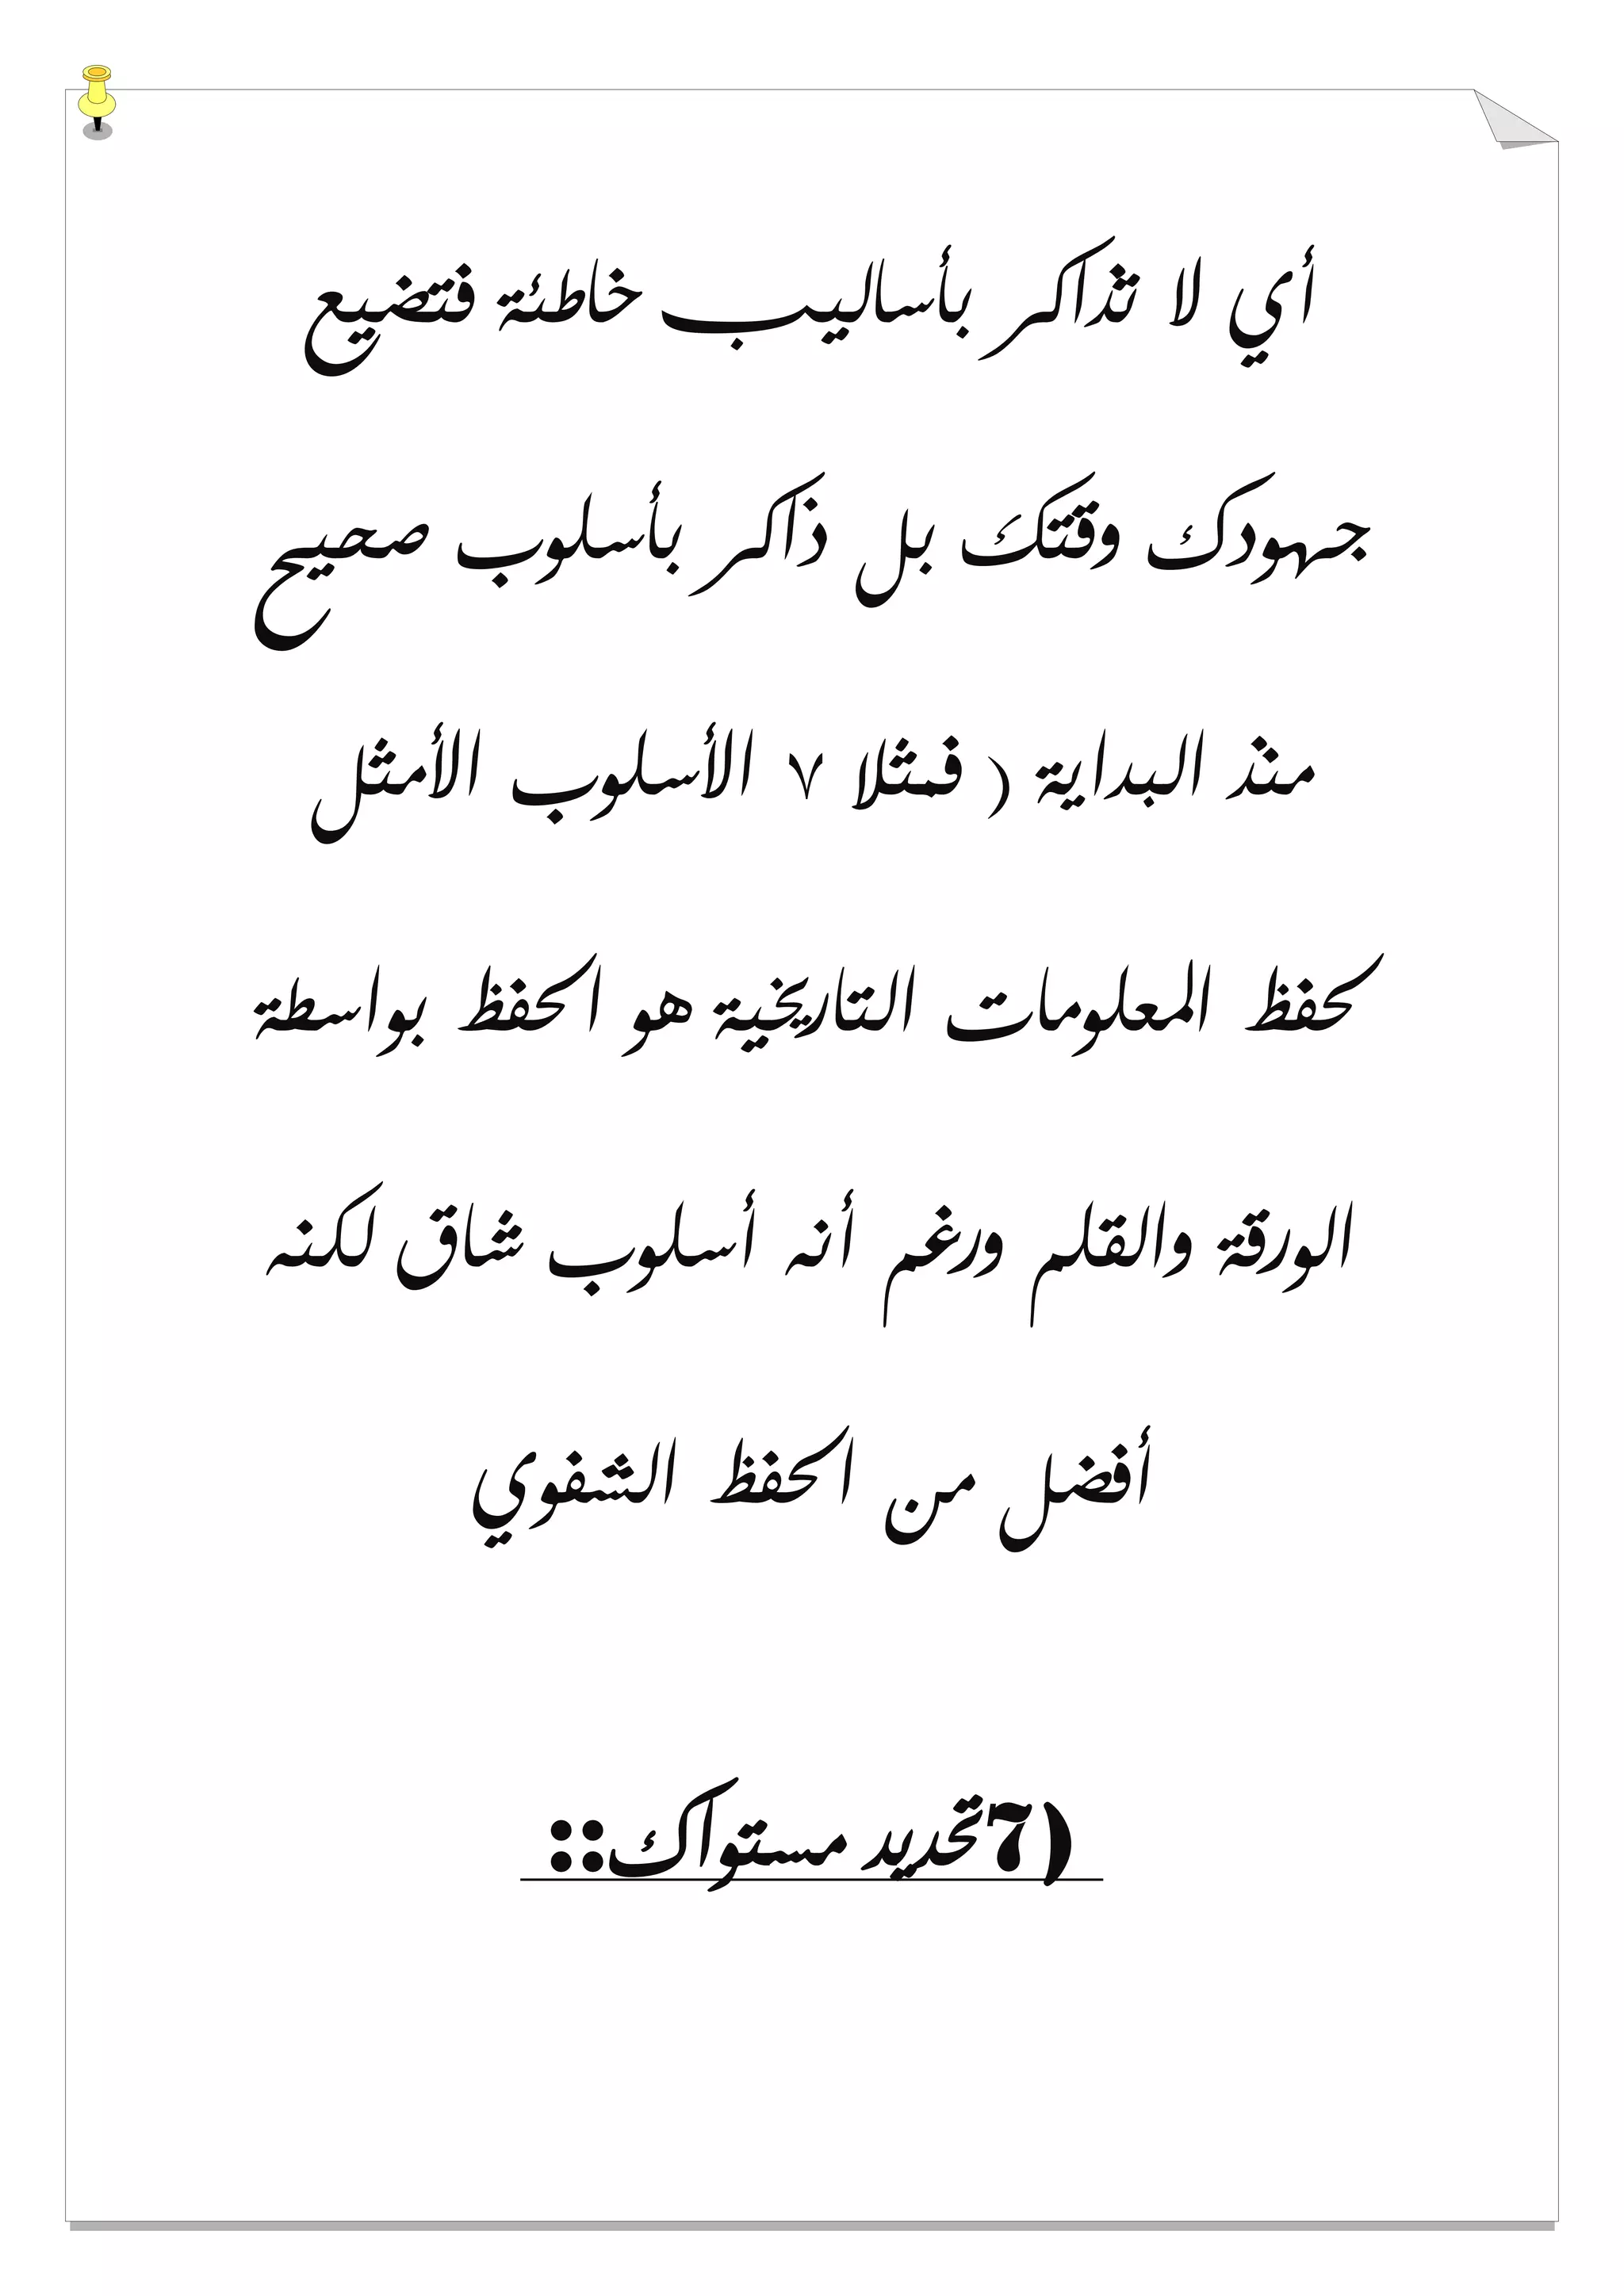 أي لا تذاكر بأساليب خاطئة فتضيع
جهودك وقتك بل ذاكر بأسلوب صحيح
منذ البداية ( فمثلا ٧ الأسلوب الأمثل
لحفظ المعلومات التاريخية هو الحفظ بواسطة
الورقة والقلم ورغم أنه أسلوب شاق لكنه
أفضل من الحفظ الشفوي
7)تحديد مستواك::